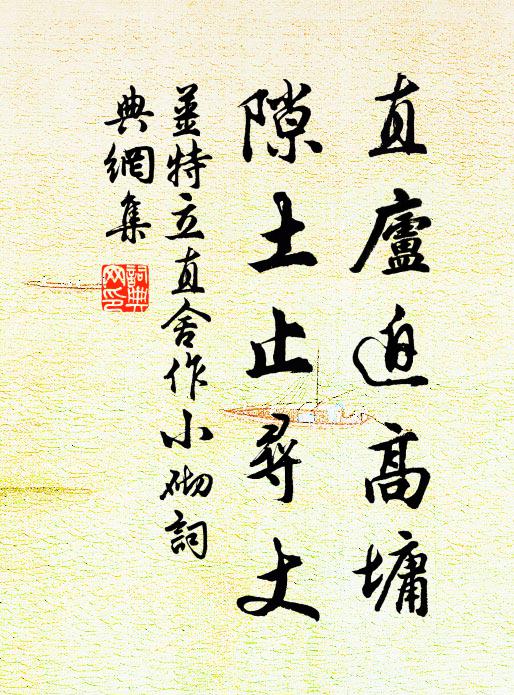 直廬迫高墉
隙土止尋丈
姜特立直舍作小砌詞
典網集
詞典網印